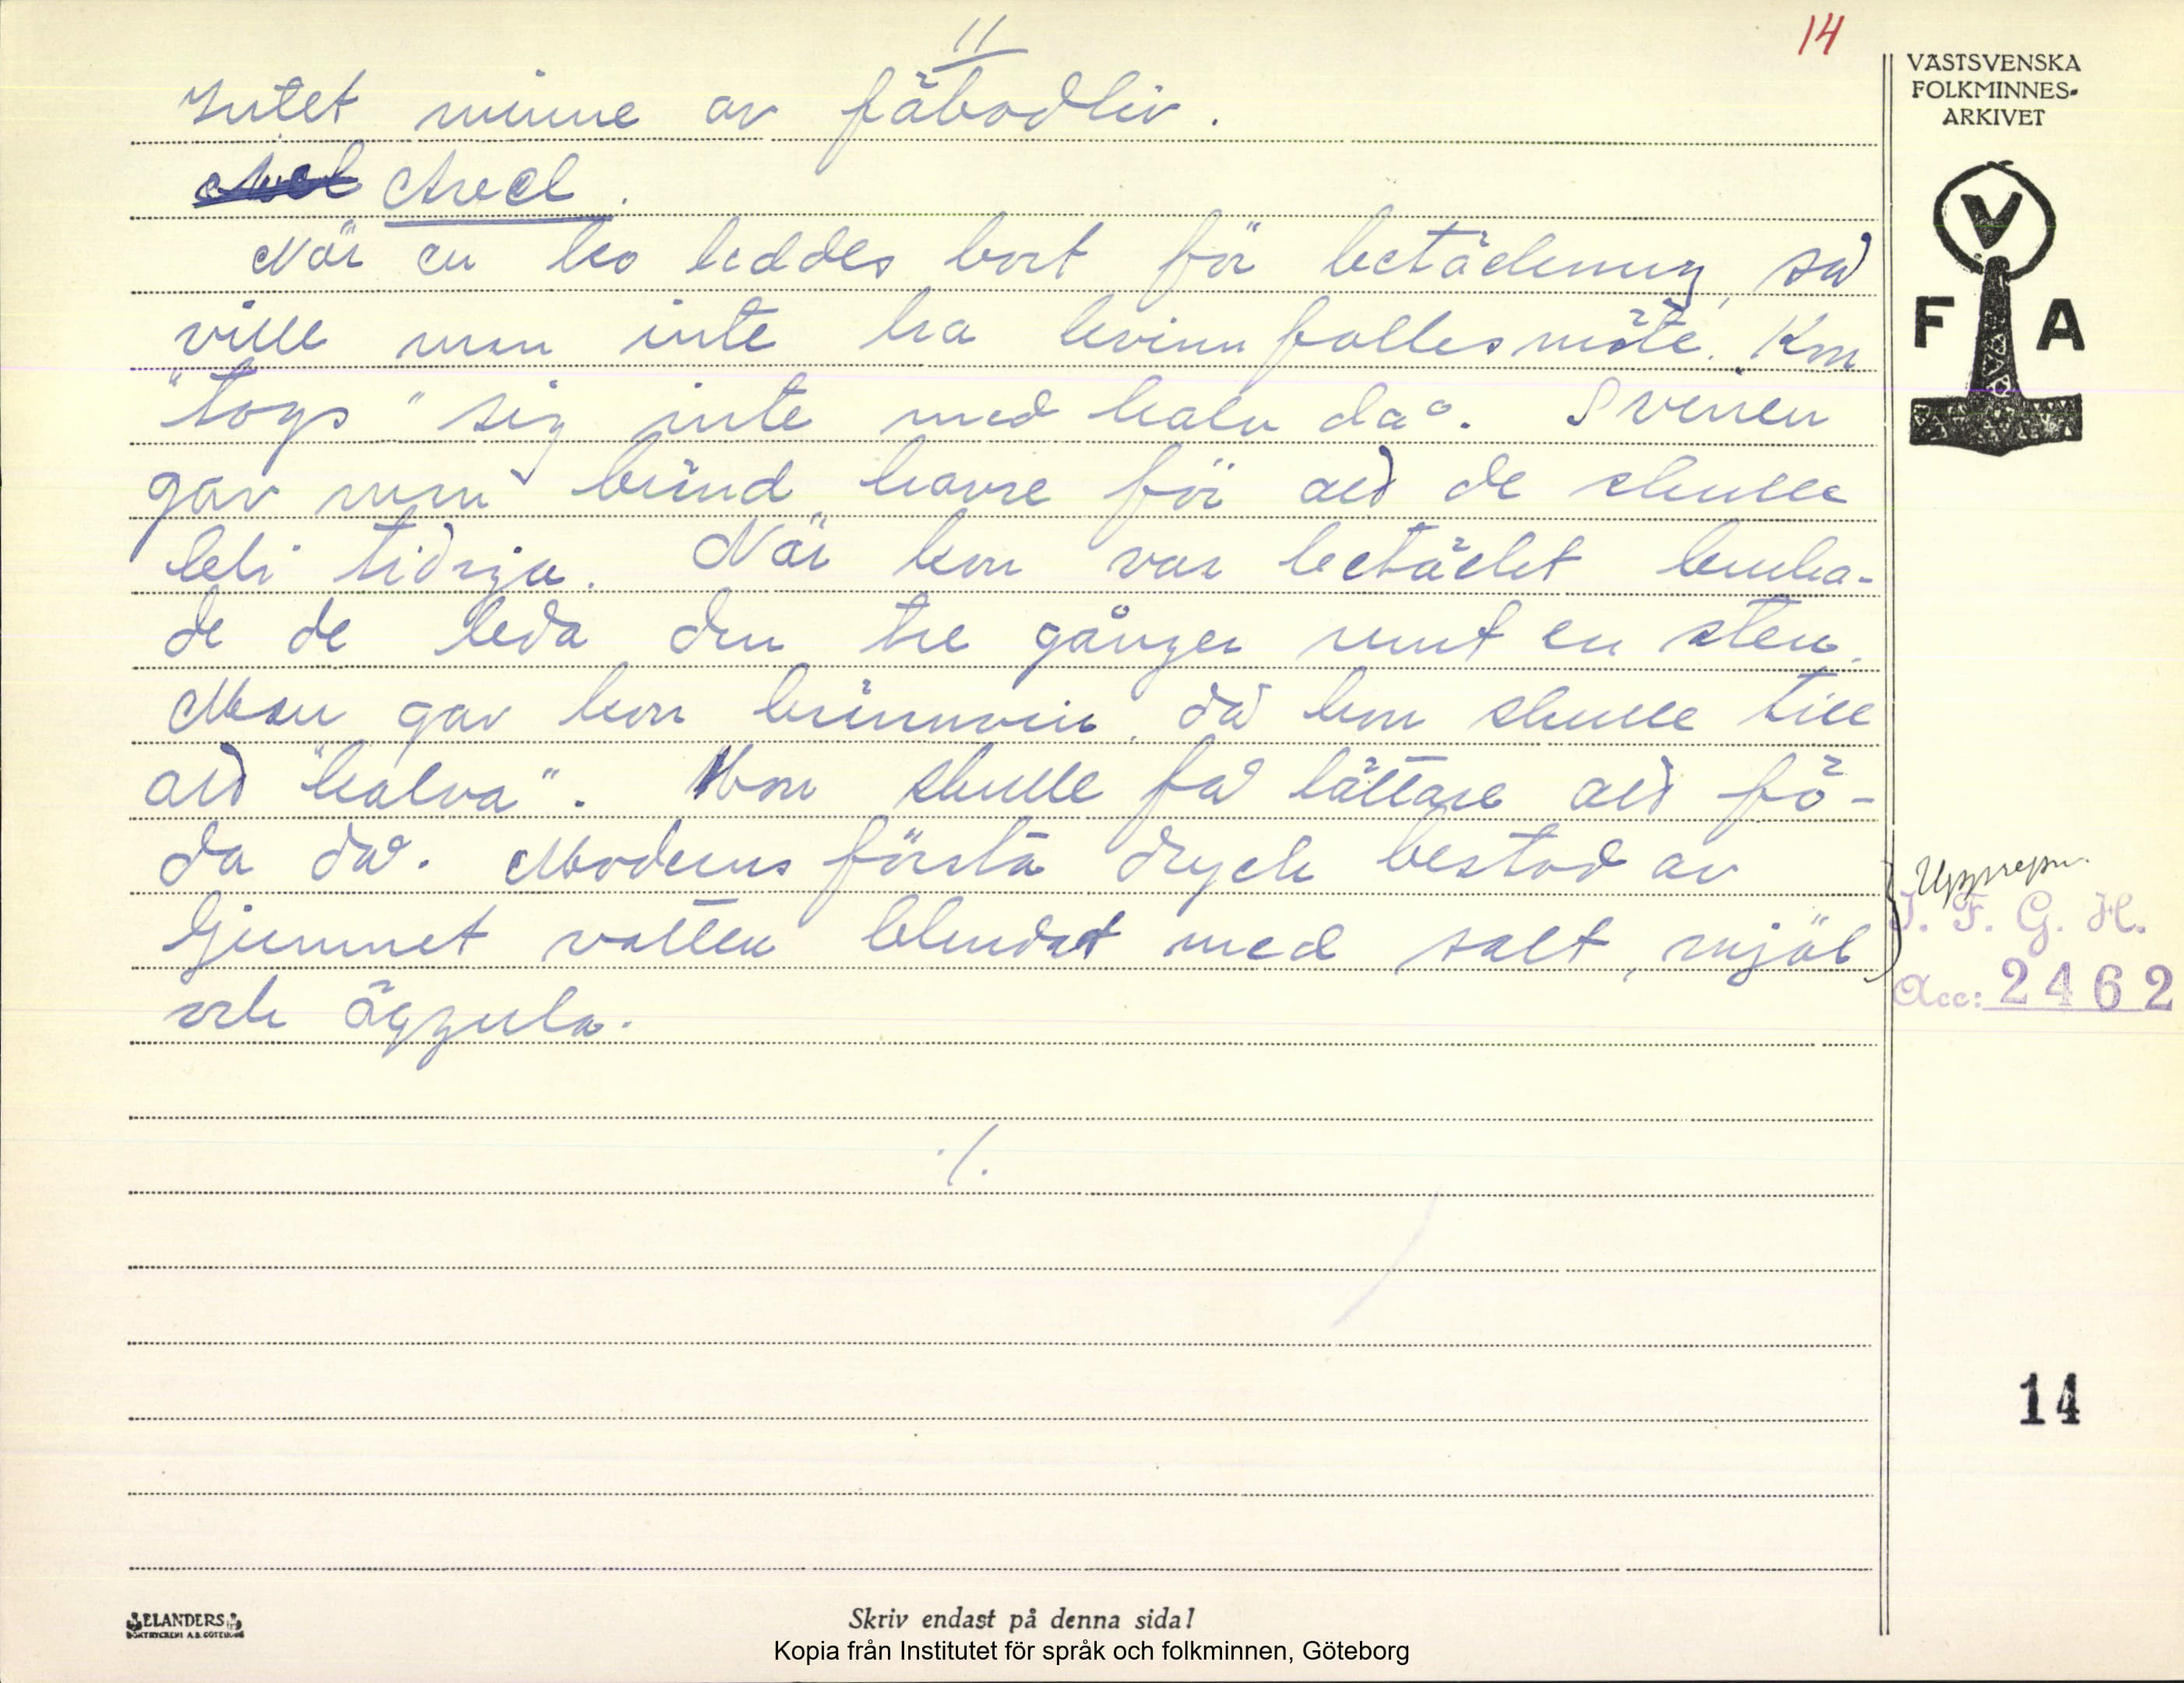 11
14
Intet minne av fäbodliv.
Avel.
När en ko leddes bort för betäckning, så
ville man inte ha kvinnfolksmöte. Kon
"togs" sig inte med kalv då. Svinen
gav man bränd havre för att de skulle
bli tidiga. När kon var betäckt bruka-
de de leda den tre gånger runt en sten.
Man gav kon brännvin, då hon skulle till
att "kalva". Hon skulle få lättare att fö-
da då. Moderns första dryck bestod av
ljummet vatten blandat med salt, mjöl
och äggula.
./.
VÄSTSVENSKA
FOLKMINNES-
ARKIVET
V
F A
Upprepn.
I. F. G. H.
Acc: 2462
14
ELANDERS
BOKTRYCKERI A.B. GÖTEBORG
Skriv endast på denna sida!
Kopia från Institutet för språk och folkminnen, Göteborg